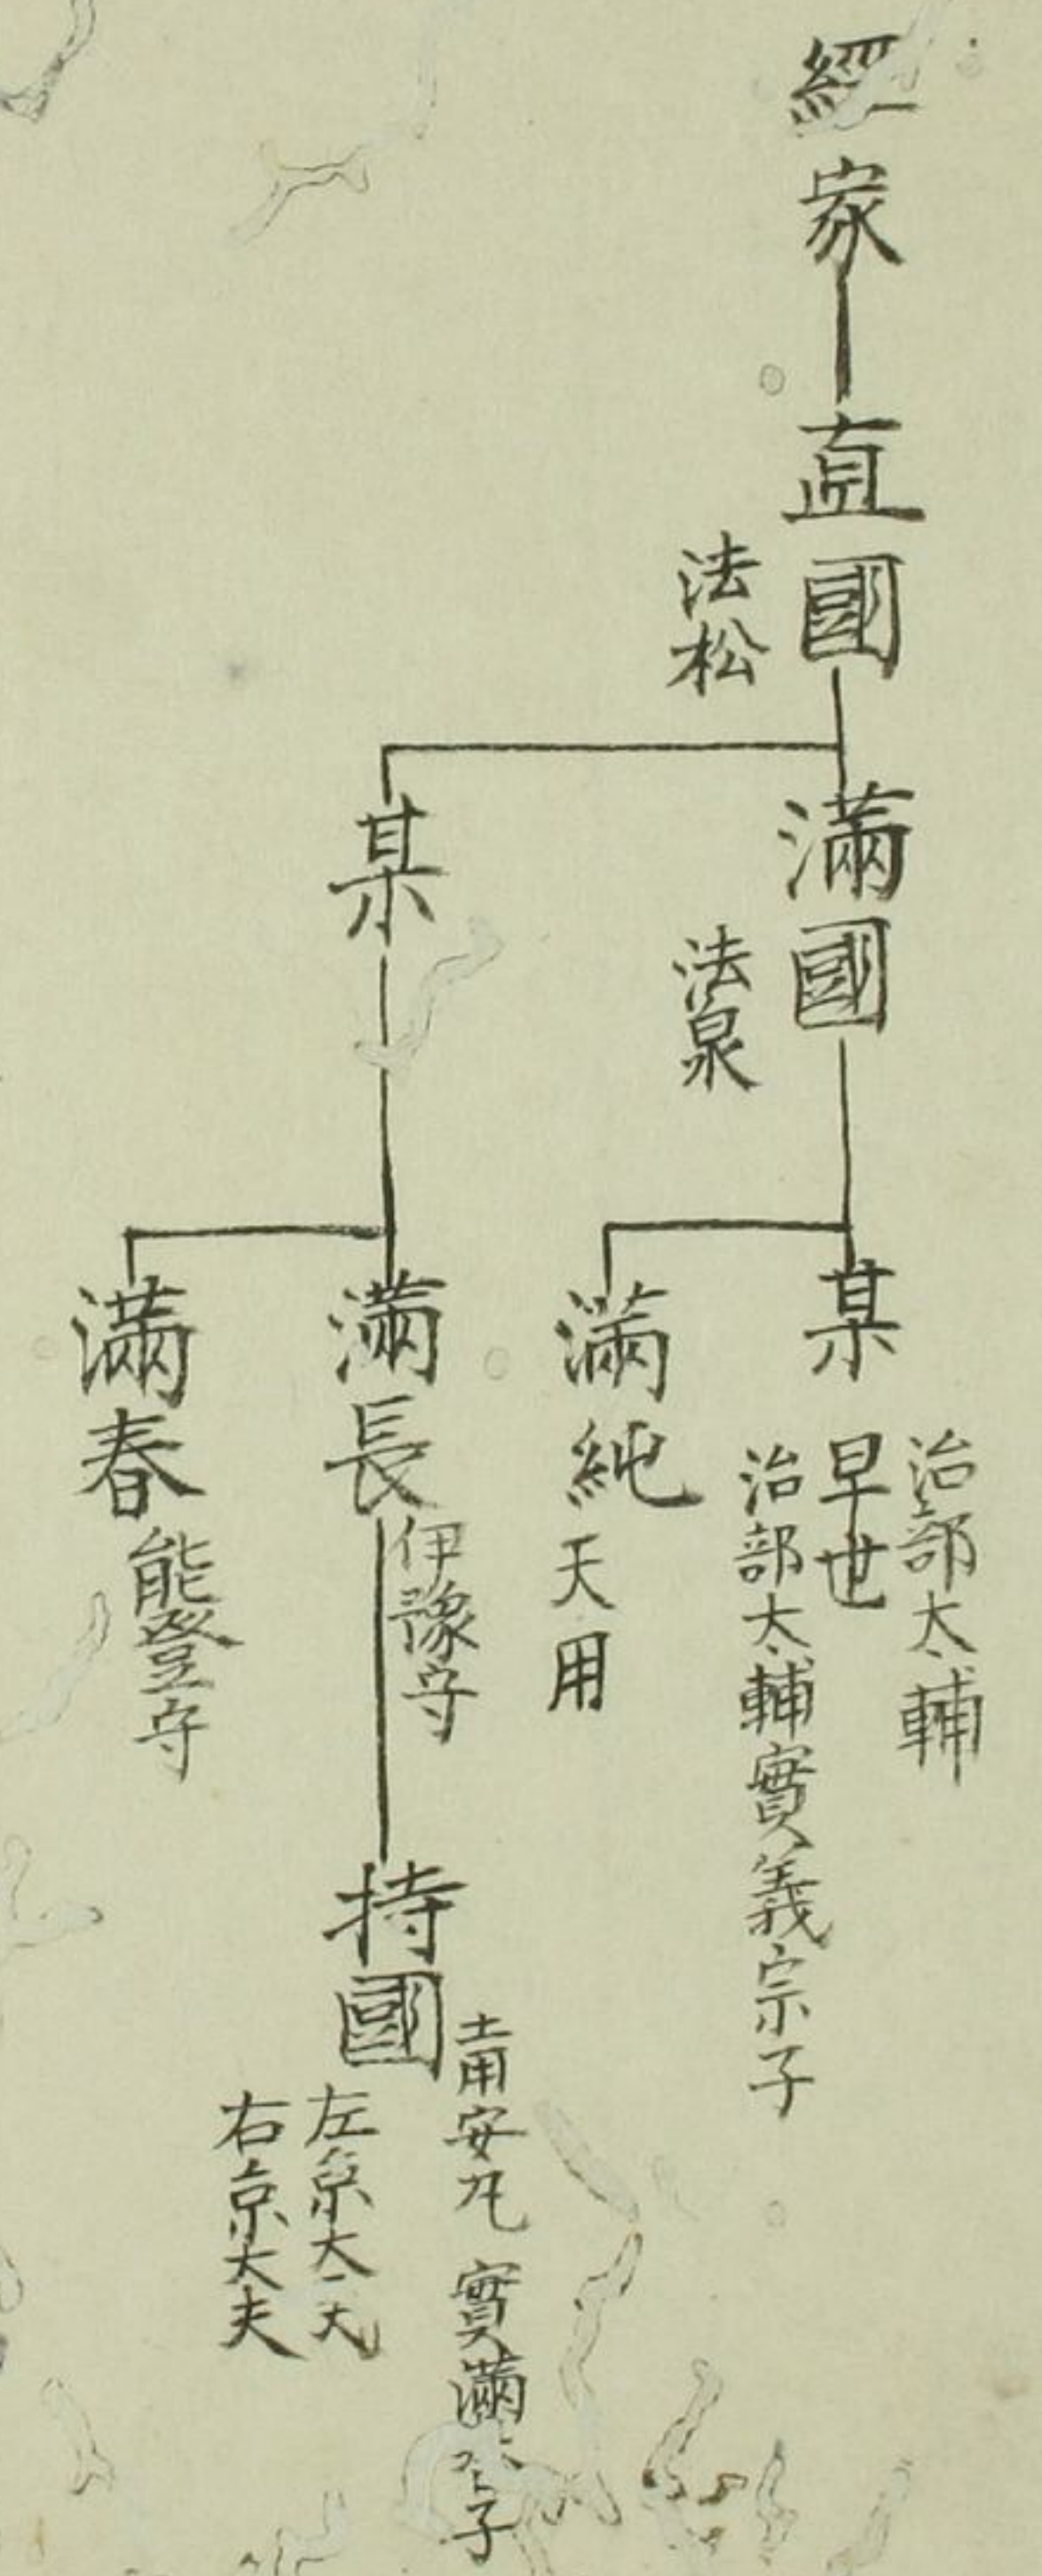 經家
直國
法松
滿國
法泉
某
治部太輔
早世
治部太輔實義宗子
滿純
天用
某
滿長
伊豫守
持國
土用安丸 實滿 子
左京大夫
右京大夫
滿春
能登守